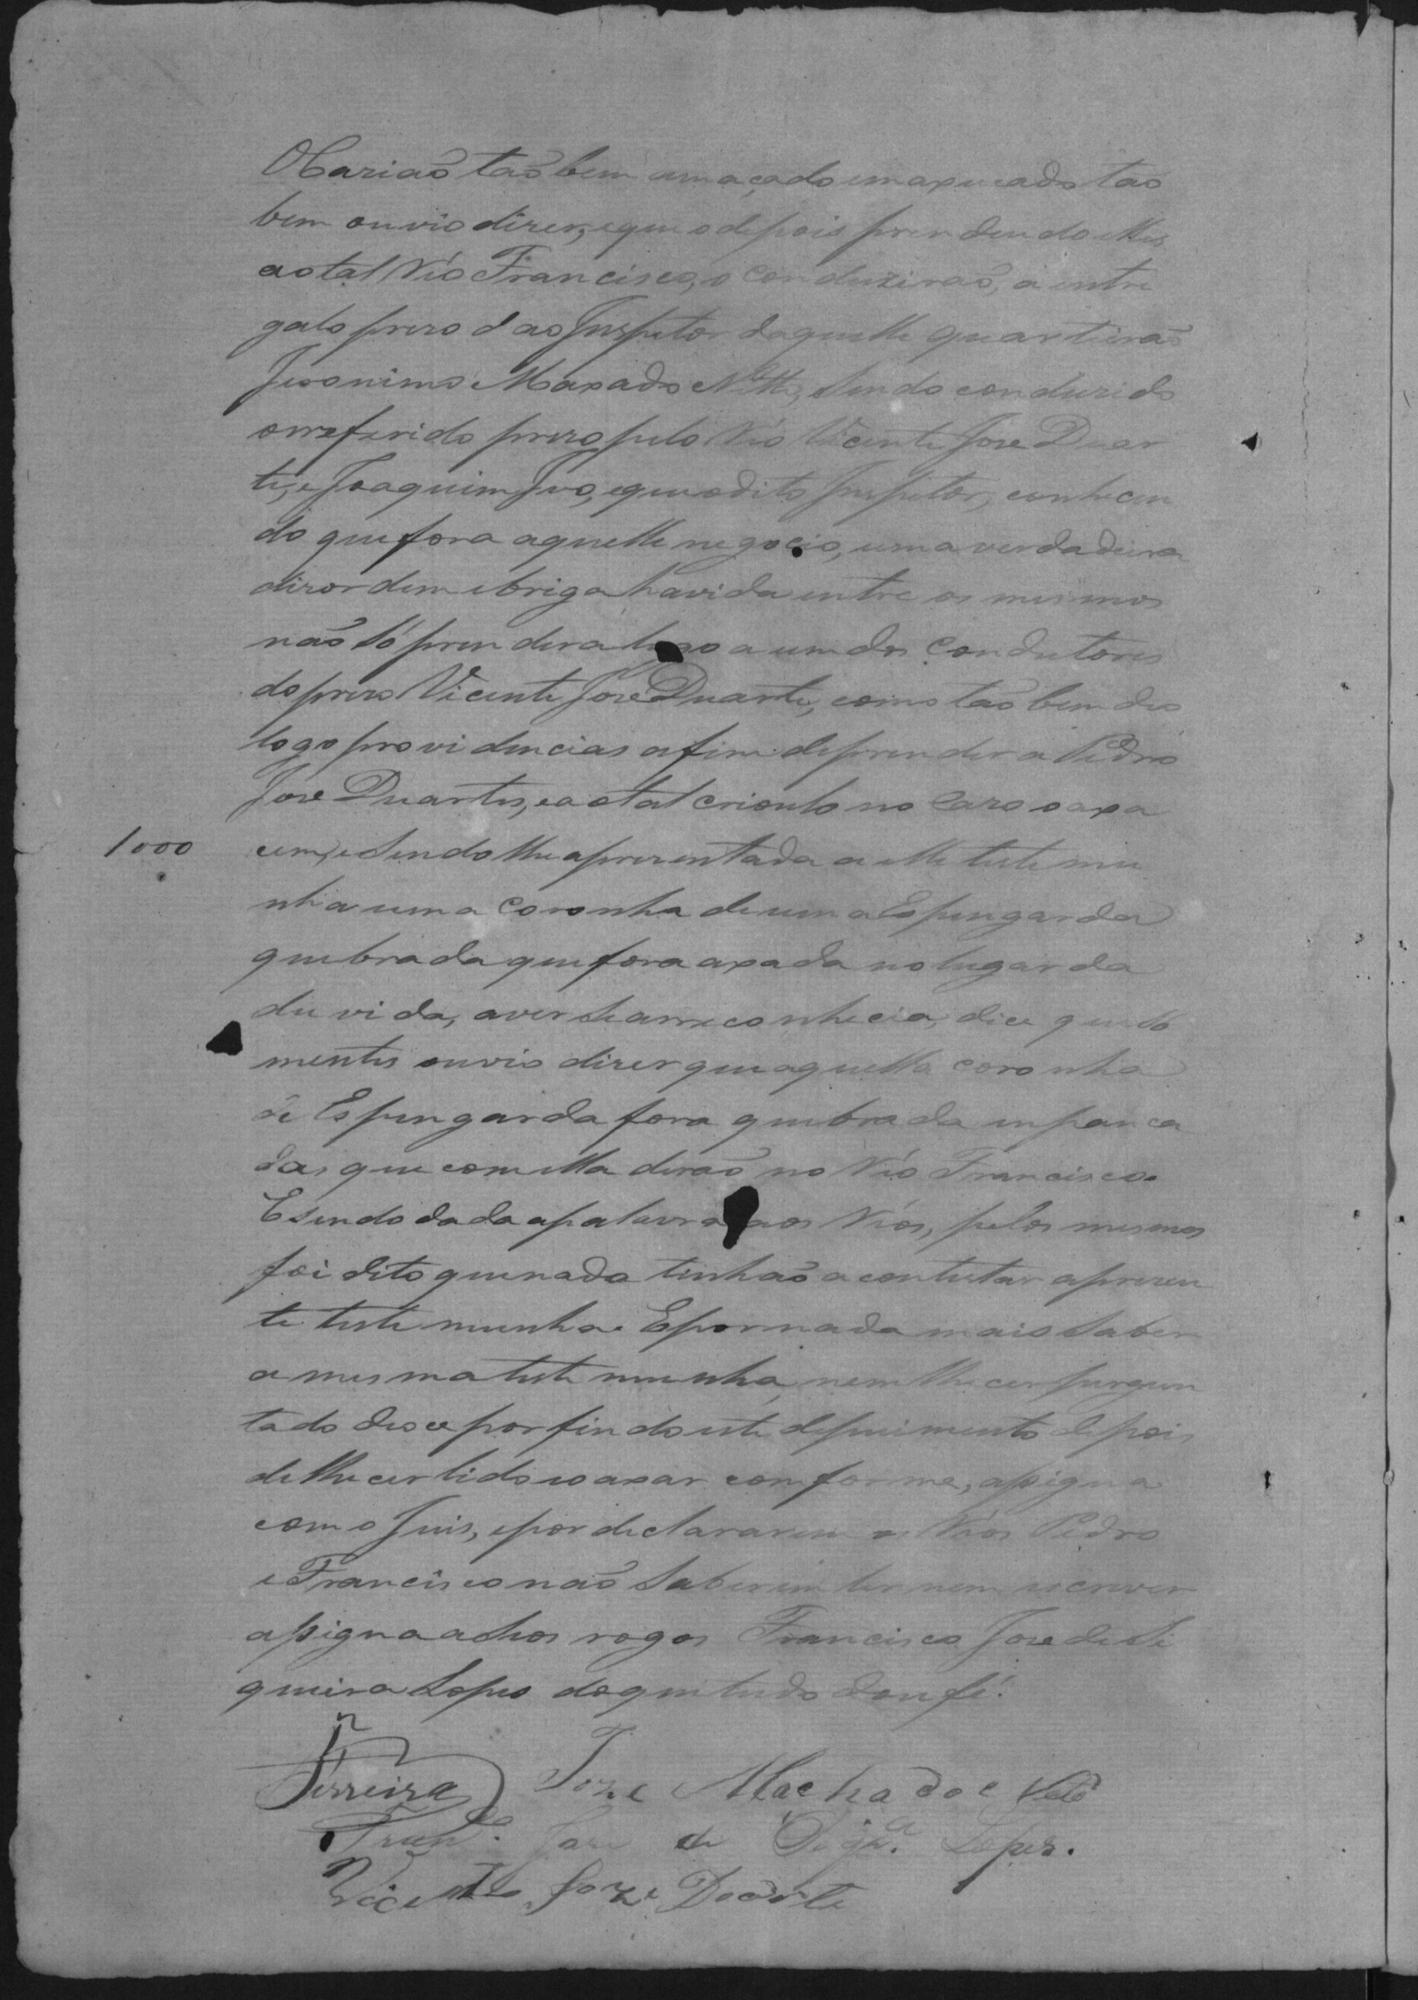 tão bem amaçado emaxucado tão
bem ouvio dizer, eque odepois prendendo elles
aotal Réo Francisco, o conduzirão, a entre
galo prezo dao Inspetor daquelle quarteirão
Jeronimo Maxado Netto, Sendo conduzido
orreferido prezo pelo Réo Vicente Jose Duar
te, e Joaquim Ivo, equeodito Inspetor, conhecen
do quefora aquelle negocio, uma verdadeira
dizordem ebriga havida entre os mesmos
não Só prendera logo a um dos Condutores
doprezo Vicente Jose Duarte, como tão bem deo
logo providencias afim deprender a Pedro
Jose Duartes, eaotal crioulo no Cazo oaxa
1000
cem, eSendolhe aprezentada a elle teste mu
nha uma Coronha de uma Espingarda
quebrada quefora axada nolugar da
duvida, aver Searreconhecia, dice que So
mentes ouvio dizer queaquella coronha
de Espingarda fora quebrada enpanca
das que comella derão no Réo Francisco.
ESendo dada apalavra aos Réos, pelos mesmos
foi dito quenada tinhão acontestar aprezen
te teste munha. Epornada mais Saber
a mesma teste munha, nemlhe cer pergun
tado deoce porfindo este depuimento depois
delhe cer lido eoaxar conforme, assigna
como Juis, epor declararem os Réos Pedro
e Francisco não Saberem ler nem escrever
assigna aSeos rogos Francisco Jose de Si
queira Lopes doque tudo dou fé.
Ferreira Joze Machado e Neto
Fran.co Jose de Siqr.a Lopes.
Vicente Joze Doarte